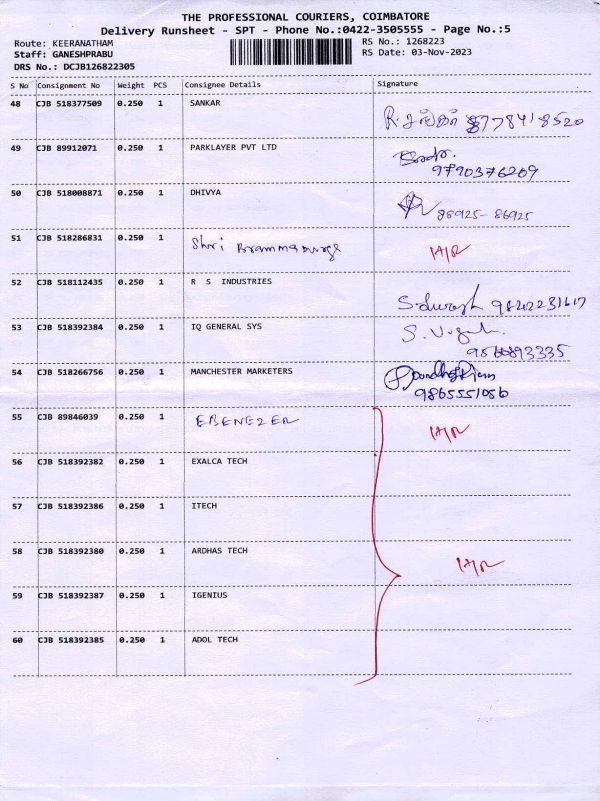 THE PROFESSIONAL COURIERS, COIMBATORE
Delivery Runsheet - SPT - Phone No.:0422-3505555 - Page No.:5
Route: KEERANATHAM
RS No.: 1268223
Staff: GANESHPRABU
RS Date: 03-Nov-2023
DRS No.: DCJB126822305
S No Consignment No Weight PCS Consignee Details Signature
48 CJB 518377509 0.250 1 SANKAR
49 CJB 89912071 0.250 1 PARKLAYER PVT LTD
9790376209
50 CJB 518008871 0.250 1 DHIVYA 88925-86925
51 CJB 518286831 0.250 1 Shri
52 CJB 518112435 0.250 1 R S INDUSTRIES
53 CJB 518392384 0.250 1 IQ GENERAL SYS
54 CJB 518266756 0.250 1 MANCHESTER MARKETERS
9865551056
55 CJB 89846039 0.250 1 EBENEZER
56 CJB 518392382 0.250 1 EXALCA TECH
57 CJB 518392386 0.250 1 ITECH
58 CJB 518392380 0.250 1 ARDHAS TECH
59 CJB 518392387 0.250 1 IGENIUS
60 CJB 518392385 0.250 1 ADOL TECH